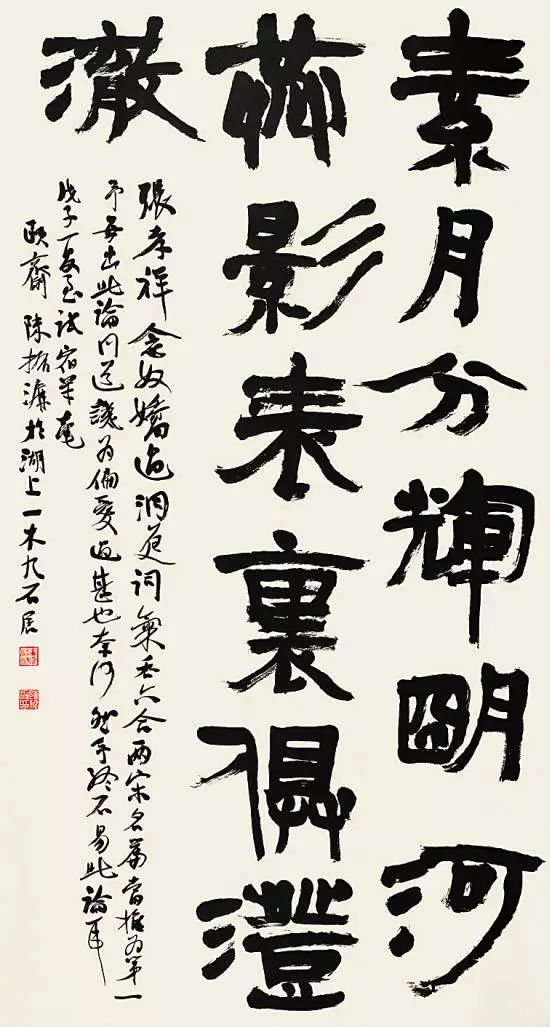 素月分輝朙河
共影表裏俱澄
澈
張孝祥念奴嬌過洞庭詞氣吞六合兩宋名篇當推為第一
予每出此論同道譏為偏愛過甚也奈何然予終不易此論耳
戊子至試宿羊毫
頤齋陳振濂於湖上一木九石居